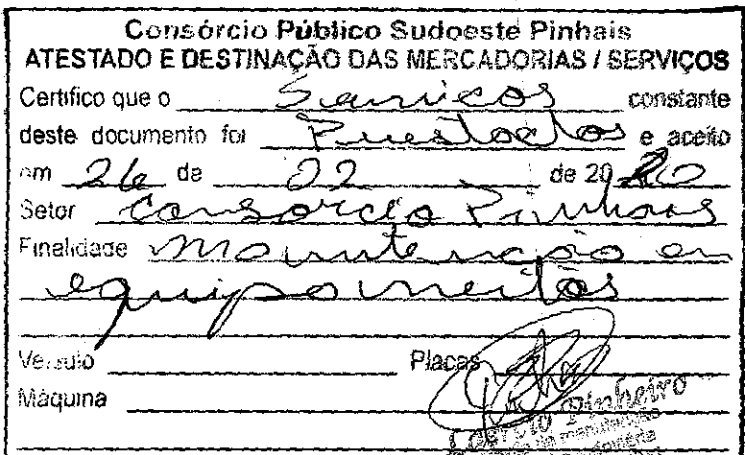 Consórcio Público Sudoeste Pinhais
ATESTADO E DESTINAÇÃO DAS MERCADORIAS / SERVIÇOS
Certifico que o Serviços constante
deste documento foi Prestados e aceito
em 26 de de 2020
Setor Consorcio Pinhais
Finalidade Manutenção em
equipamentos
Veículo Placas
Máquina
Pinheiro